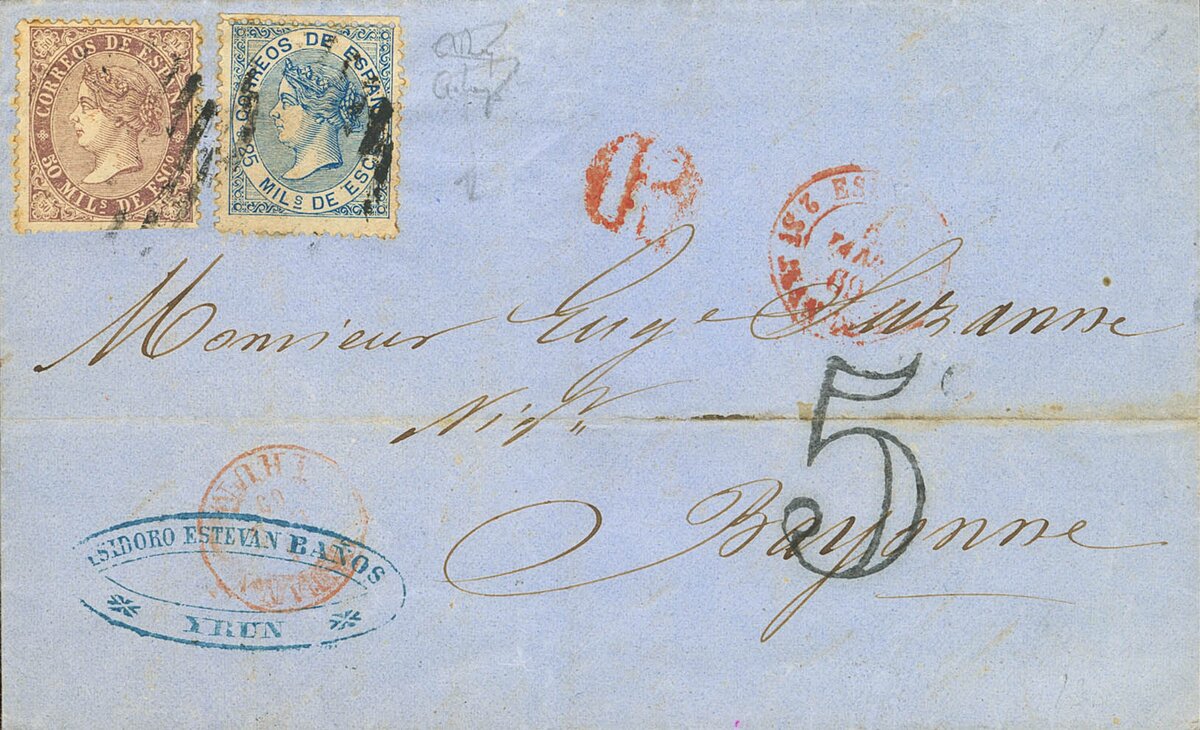 CORREOS DE ESPAÑA
50 MILS DE ESCO
CORREOS DE ESPAÑA
25 MILS DE ESC
2 ST ES
69
Monsieur Euge Suzanne
Nigt
5
Bayonne
IRUN
69
ISIDORO ESTEVAN BAÑOS
YRUN